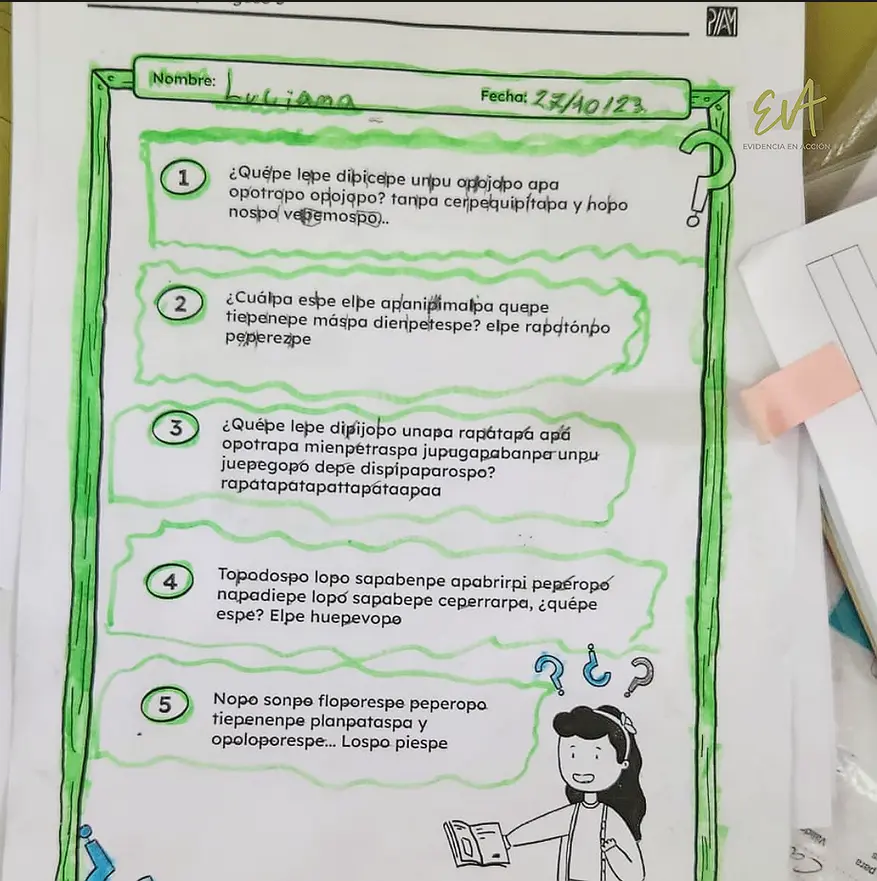 Nombre: Luciana Fecha: 27/10/23
EVA
EVIDENCIA EN ACCIÓN
1 ¿Quépe lepe dipicepe unpu opojopo apa
opotropo opojopo? tanpa cerpequipítapa y hopo
nospo vepemospo...
2 ¿Cuálpa espe elpe apanipimalpa quepe
tiepenepe máspa dienpetespe? elpe rapatónpo
peperezpe
3 ¿Quépe lepe dipijopo unapa rapátapá apá
opotrapa mienpetraspa jupugapabanpa unpu
juepegopó depe dispipaparospo?
rapátapátapattapátaapaa
4 Topodospo lopo sapabenpe apabrirpi pepéropó
napadiepe lopó sapabepe ceperrarpa, ¿quépe
espe? Elpe huepevopo
5 Nopo sonpo floporespe peperopo
tiepenenpe planpataspa y
opoloporespe... Lospo piespe
para